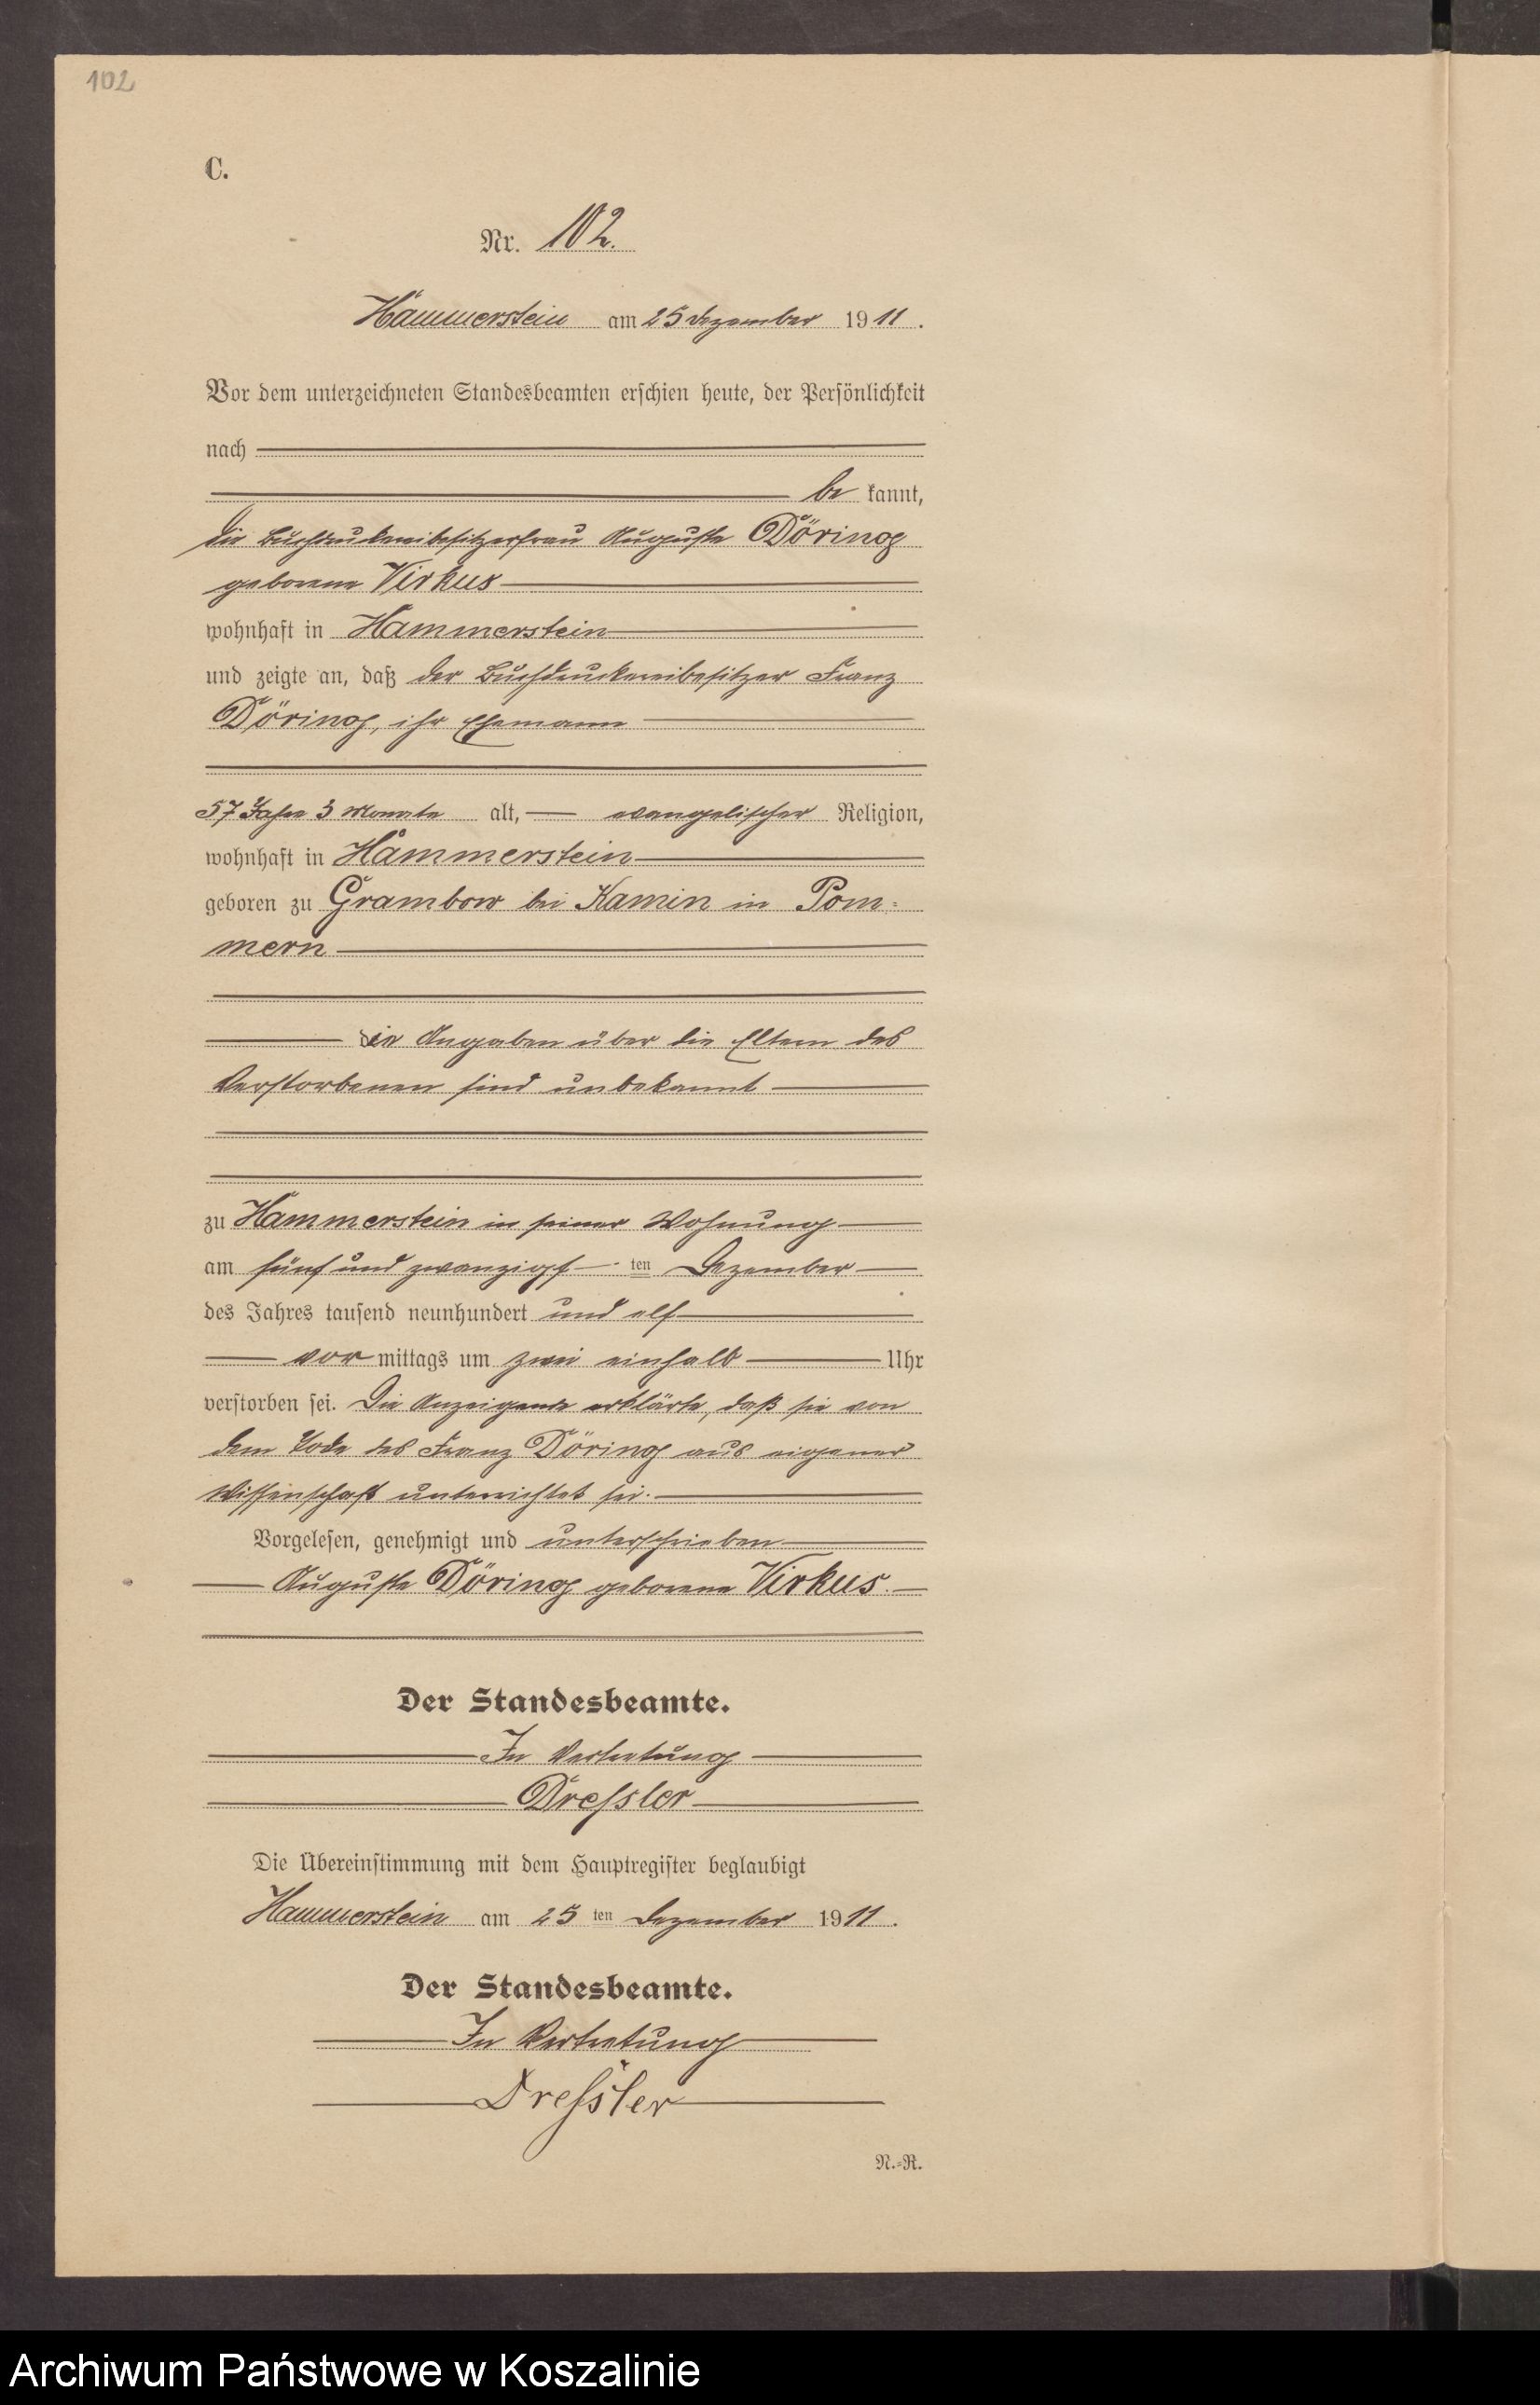 102
C.
Nr. 102.
Hammerstein am 25 Dezember 1911.
Vor dem unterzeichneten Standesbeamten erschien heute, der Persönlichkeit
nach
be kannt,
die Buchdruckereibesitzerfrau Auguste Döring
geborene Virkus
wohnhaft in Hammerstein
und zeigte an, daß der Buchdruckereibesitzer Franz
Döring, ihr Ehemann
57 Jahre 3 Monate alt, evangelischer Religion,
wohnhaft in Hammerstein
geboren zu Grambow bei Kamin in Pom=
mern
die Angaben über die Eltern des
Verstorbenen sind unbekannt
zu Hammerstein in seiner Wohnung
am fünf und zwanzigs ten Dezember
des Jahres tausend neunhundert und elf
vor mittags um zwei einhalb Uhr
verstorben sei. Die Anzeigende erklärte, daß sie von
dem Tode des Franz Döring aus eigener
Wissenschaft unterrichtet sei.
Vorgelesen, genehmigt und unterschrieben
Auguste Döring geborene Virkus.
Der Standesbeamte.
In Vertretung
Dressler
Die Übereinstimmung mit dem Hauptregister beglaubigt
Hammerstein am 25 ten Dezember 1911.
Der Standesbeamte.
In Vertretung
Dressler
N.=R.
Archiwum Państwowe w Koszalinie